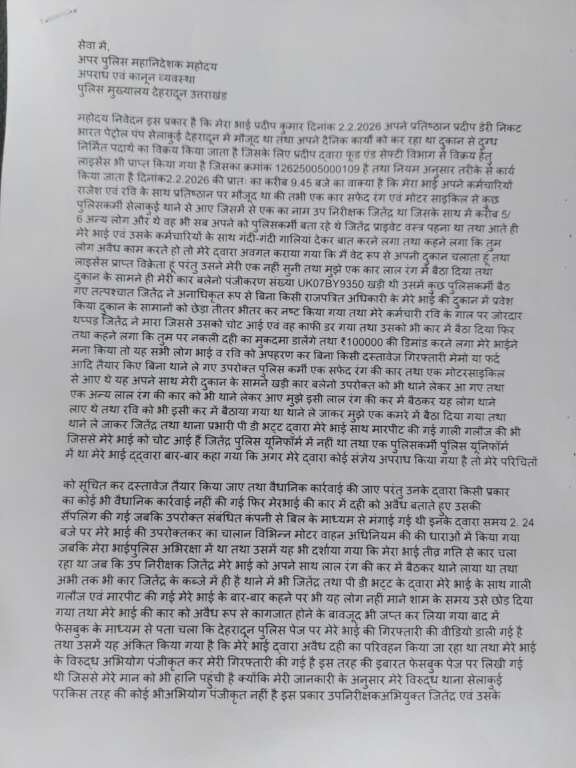 सेवा में,
अपर पुलिस महानिदेशक महोदय
अपराध एवं कानून व्यवस्था
पुलिस मुख्यालय देहरादून उत्तराखंड
महोदय निवेदन इस प्रकार है कि मेरा भाई प्रदीप कुमार दिनांक 2.2.2026 अपने प्रतिष्ठान प्रदीप डेरी निकट
भारत पेट्रोल पंप सेलाकुई देहरादून में मौजूद था तथा अपने दैनिक कार्यों को कर रहा था दुकान से दुग्ध
निर्मित पदार्थ का विक्रय किया जाता है जिसके लिए प्रदीप द्वारा फूड एंड सेफ्टी विभाग से विक्रय हेतु
लाइसेंस भी प्राप्त किया गया है जिसका क्रमांक 12625005000109 है तथा नियम अनुसार तरीके से कार्य
किया जाता है दिनांक2.2.2026 की प्रातः का करीब 9.45 बजे का वाक्या है कि मेरा भाई अपने कर्मचारियों
राजेश एवं रवि के साथ प्रतिष्ठान पर मौजूद था की तभी एक कार सफेद रंग एवं मोटर साइकिल से कुछ
पुलिसकर्मी सेलाकुई थाने से आए जिसमें से एक का नाम उप निरीक्षक जितेंद्र था जिसके साथ में करीब 5/
6 अन्य लोग और थे वह भी सब अपने को पुलिसकर्मी बता रहे थे जितेंद्र प्राइवेट वस्त्र पहना था तथा आते ही
मेरे भाई एवं उसके कर्मचारियों के साथ गंदी-गंदी गालियां देकर बात करने लगा तथा कहने लगा कि तुम
लोग अवैध काम करते हो तो मेरे द्वारा अवगत कराया गया कि मैं वेद रूप से अपनी दुकान चलाता हूं तथा
लाइसेंस प्राप्त विक्रेता हूं परंतु उसने मेरी एक नहीं सुनी तथा मुझे एक कार लाल रंग में बैठा दिया तथा
दुकान के सामने ही मेरी कार बलेनो पंजीकरण संख्या UK07BY9350 खड़ी थी उसमें कुछ पुलिसकर्मी बैठ
गए तत्पश्चात जितेंद्र ने अनाधिकृत रूप से बिना किसी राजपत्रित अधिकारी के मेरे भाई की दुकान में प्रवेश
किया दुकान के सामानों को छेड़ा तीतर भीतर कर नष्ट किया गया तथा मेरे कर्मचारी रवि के गाल पर जोरदार
थप्पड़ जितेंद्र ने मारा जिससे उसको चोट आई एवं वह काफी डर गया तथा उसको भी कार में बैठा दिया फिर
तथा कहने लगा कि तुम पर नकली दही का मुकदमा डालेंगे तथा ₹100000 की डिमांड करने लगा मेरे भाईने
मना किया तो यह सभी लोग भाई व रवि को अपहरण कर बिना किसी दस्तावेज गिरफ्तारी मेमो या फर्द
आदि तैयार किए बिना थाने ले गए उपरोक्त पुलिस कर्मी एक सफेद रंग की कार तथा एक मोटरसाइकिल
से आए थे यह अपने साथ मेरी दुकान के सामने खड़ी कार बलेनो उपरोक्त को भी थाने लेकर आ गए तथा
एक अन्य लाल रंग की कार को भी थाने लेकर आए मुझे इसी लाल रंग की कर में बैठकर यह लोग थाने
लाए थे तथा रवि को भी इसी कर में बैठाया गया था थाने ले जाकर मुझे एक कमरे में बैठा दिया गया तथा
थाने ले जाकर जितेंद्र तथा थाना प्रभारी पी डी भट्ट के द्वारा मेरे भाई साथ मारपीट की गई गाली गलौज की भी
जिससे मेरे भाई को चोट आई हैं जितेंद्र पुलिस यूनिफॉर्म में नहीं था तथा एक पुलिसकर्मी पुलिस यूनिफॉर्म
में था मेरे भाई द्द्वारा बार-बार कहा गया कि अगर मेरे द्वारा कोई संज्ञेय अपराध किया गया है तो मेरे परिचितों
को सूचित कर दस्तावेज तैयार किया जाए तथा वैधानिक कार्रवाई की जाए परंतु उनके द्वारा किसी प्रकार
का कोई भी वैधानिक कार्रवाई नहीं की गई फिर मेरभाई की कार में दही को अवैध बताते हुए उसकी
सैंपलिंग की गई जबकि उपरोक्त संबंधित कंपनी से बिल के माध्यम से मंगाई गई थी इनके द्वारा समय 2. 24
बजे पर मेरे भाई की उपरोक्तकर का चालान विभिन्न मोटर वाहन अधिनियम की की धाराओं में किया गया
जबकि मेरा भाईपुलिस अभिरक्षा में था तथा उसमें यह भी दर्शाया गया कि मेरा भाई तीव्र गति से कार चला
रहा था जब कि उप निरीक्षक जितेंद्र मेरे भाई को अपने साथ लाल रंग की कर में बैठकर थाने लाया था तथा
अभी तक भी कार जितेंद्र के कब्जे में ही है थाने में भी जितेंद्र तथा पी डी भट्ट के द्वारा मेरे भाई के साथ गाली
गलौज एवं मारपीट की गई मेरे भाई के बार-बार कहने पर भी यह लोग नहीं माने शाम के समय उसे छोड़ दिया
गया तथा मेरे भाई की कार को अवैध रूप से कागजात होने के बावजूद भी जप्त कर लिया गया बाद में
फेसबुक के माध्यम से पता चला कि देहरादून पुलिस पेज पर मेरे भाई की गिरफ्तारी की वीडियो डाली गई है
तथा उसमें यह अंकित किया गया है कि मेरे भाई द्वारा अवैध दही का परिवहन किया जा रहा था तथा मेरे भाई
के विरुद्ध अभियोग पंजीकृत कर मेरी गिरफ्तारी की गई है इस तरह की इबारत फेसबुक पेज पर लिखी गई
थी जिससे मेरे मान को भी हानि पहुंची है क्योंकि मेरी जानकारी के अनुसार मेरे विरुद्ध थाना सेलाकुई
परकिस तरह की कोई भीअभियोग पंजीकृत नहीं है इस प्रकार उपनिरीक्षकअभियुक्त जितेंद्र एवं उसके